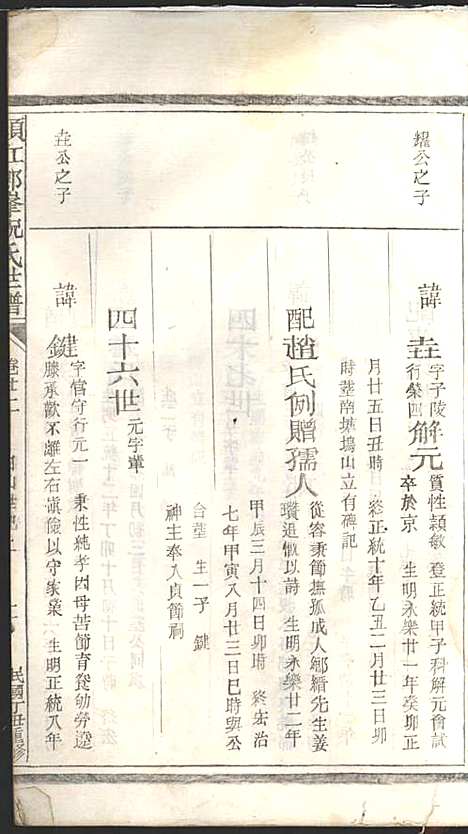 燿公之子
諱 垚 字子陵 行榮四 解元 質性穎敏 登正統甲子科解元會試
卒於京 生明永樂廿一年癸卯正
月廿五日丑時 終正統十年乙丑二月廿三日卯
時塟南塘塢山立有碑記
配趙氏例贈孺人 從容秉節撫孤成人鄉縉先生姜
瓚追懷以詩 生明永樂廿二年
甲辰三月十四日卯時 終宏治
七年甲寅八月廿三日巳時與公
合塟 生一子 鍵
神主奉入貞節祠
四十六世 元字輩
垚公之子
諱 鍵 字官 行元一 秉性純孝因母苦節育養劬勞遶
膝承歡不離左右愼儉以守家業 生明正統八年
須江郎峯祝氏世譜
卷廿二
民國丁丑重修